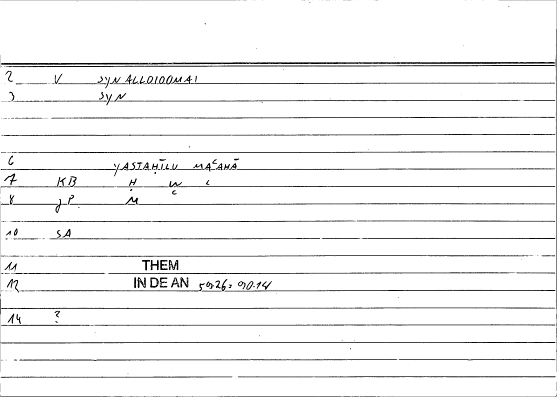 2 V SYNALLOIOOMAI
3 SYN
6 YASTAḤĪLU MAʿAHĀ
7 KB Ḥ W ʿ
8 gP M
10 SA
11 THEM
12 IN DE AN 5926: 90.14
14 ?